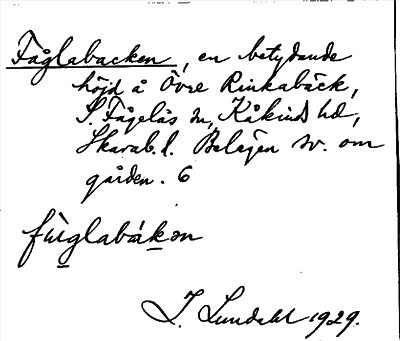 Fåglabacken, en betydande
höjd å Övre Rinkabäck,
S. Fågelås sn, Kåkinds hd,
Skarab. l. Belägen sv. om
gården. 6
fùglabákən
J. Lundahl 1929.